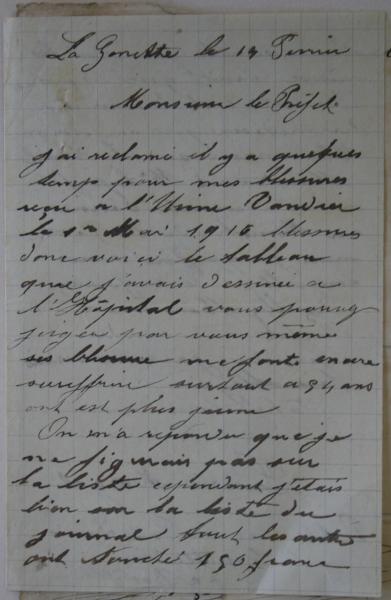 La Gorette le 14 Fevrier
Monsieur le Préfet
j'ai reclamé il y a quelques
temp pour mes blessures
reçu a l'Usine Vandier
le 1er Mai 1916 blessures
donc voici le tableau
que j'avais dessinée a
l'Hôpital vous pouvez
jugéa par vous même
ses blessure me fonte encore
oureffrire surtout a 54 ans
ont est plus jeune
On m'a repondu que je
ne figurais pas sur
la liste cependant j'étais
bien sur la liste du
journal tout les autre
ont touché 150 franc